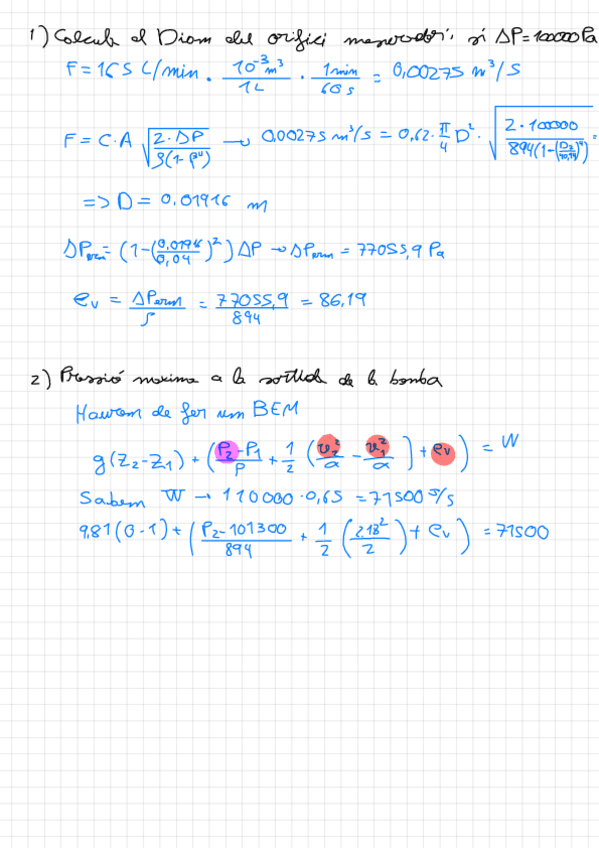 1) Calcula el Diam del orifici mesurador, si ΔP=100000 Pa
F = 165 L/min · 10⁻³m³/1L · 1min/60s = 0,00275 m³/s
F = C·A √(2·ΔP/ρ(1-β⁴)) → 0,00275 m³/s = 0,62·π/4 D²·√(2·100000/894(1-(D₂/40,94)⁴)) =
=> D = 0,01916 m
ΔPerm = (1-(0,0196/0,04)²) ΔP → ΔPerm = 77055,9 Pa
ev = ΔPerm/ρ = 77055,9/894 = 86,19
2) Pressió maxima a la sortida de la bomba
Haurem de fer un BEM
g(Z₂-Z₁) + (P₂-P₁/ρ + 1/2 (v₂²/α - v₁²/α) + ev) = W
Sabem W → 110000·0,65 = 71500 J/s
9,81(0-1) + (P₂-101300/894 + 1/2 (2,18²/2) + ev) = 71500